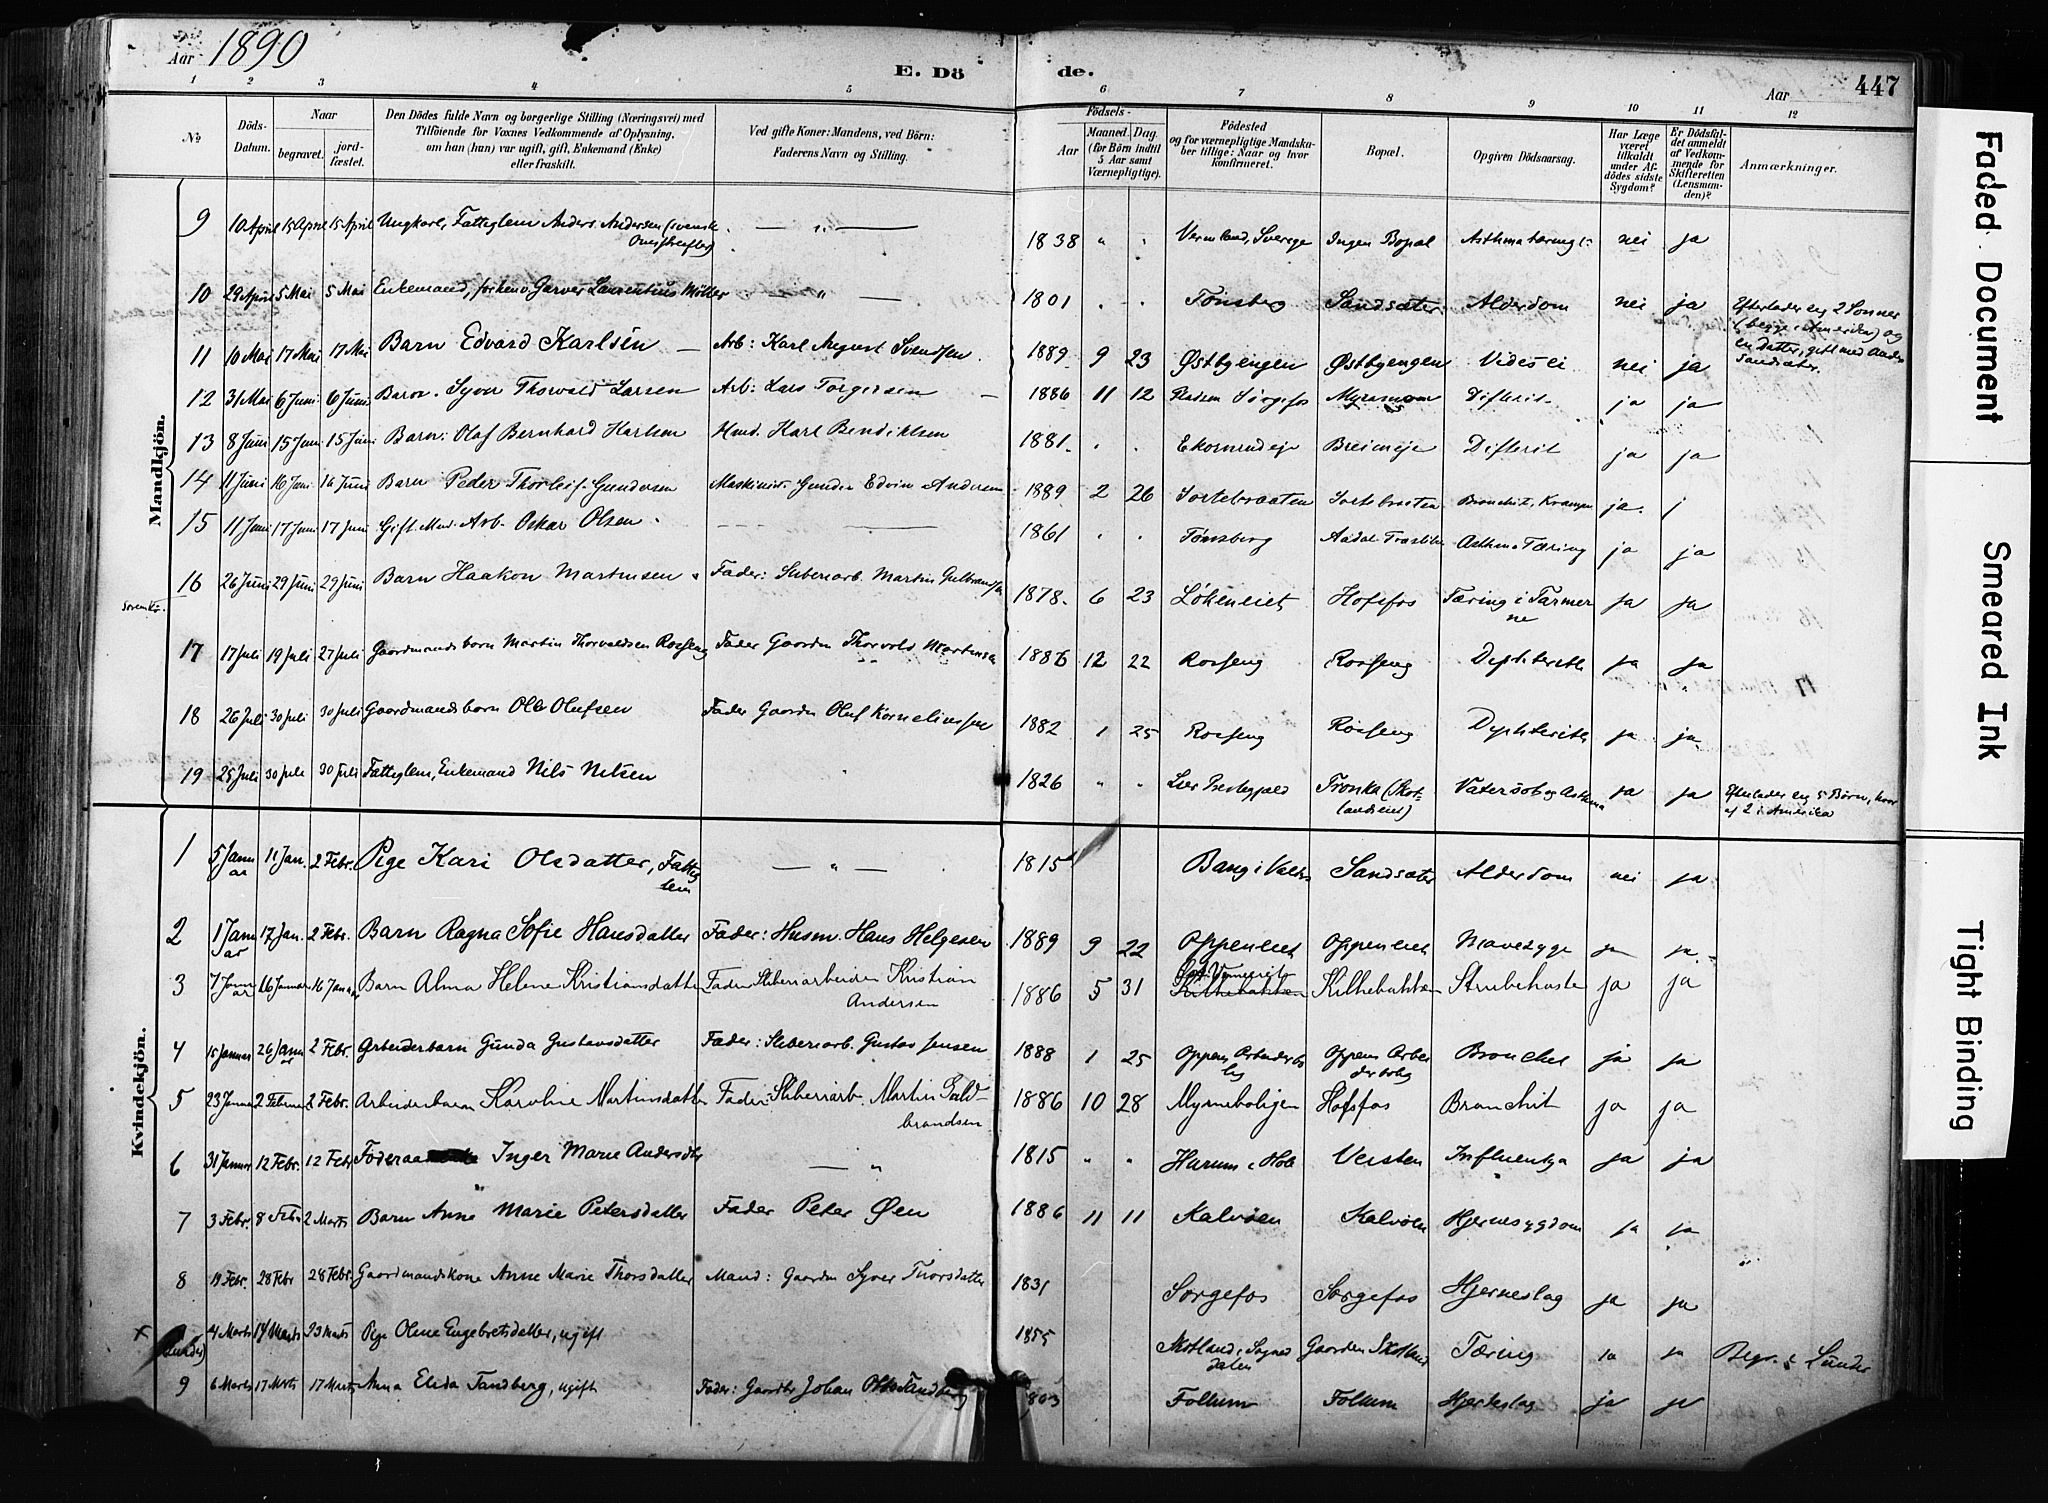 Aar 1890
E. Döde.
Aar
447
1 2 3 4 5 6 7 8 9 10 11 12
№
Döds-Datum.
Naar
begravet.
jordfæstet.
Den Dödes fulde Navn og borgerlige Stilling (Næringsvei) med Tilföiende for Voxnes Vedkommende af Oplysning, om han (hun) var ugift, gift, Enkemand (Enke) eller fraskilt.
Ved gifte Koner: Mandens, ved Börn: Faderens Navn og Stilling.
Födsels-
Aar
Maaned. Dag.
(for Börn indtil 5 Aar samt Værnepligtige).
Födested og for værnepligtige Mandskaber tillige: Naar og hvor konfirmeret.
Bopæl.
Opgiven Dödsaarsag.
Har Læge været tilkaldt under Afdödes sidste Sygdom?
Er Dödsfaldet anmeldt af Vedkommende for Skifteretten (Lensmanden)?
Anmærkninger.
Mandkjön.
9 10 April 15 April 15 April Ungkarl, Fattiglem Anders Andersen (svensk — „ — 1838 „ „ Vermland, Sverige Ingen Bopæl Asthma tæring nei ja
10 29 April 5 Mai 5 Mai Enkemand, forhenv. Garver Laurentius Møller „ — 1801 Tønsberg Sandsæter Alderdom nei ja Efterlader sig 2 Sønner (begge i Amerika) og en datter, gift med Sandsæter.
11 10 Mai 17 Mai 17 Mai Barn Edvard Karlsen — Arb: Karl August Svendsen 1889 9 23 Østbyengen Østbyengen nei ja
12 31 Mai 6 Juni 6 Juni Barn. Syver Thorvald Larsen Arb: Lars Torgersen — 1886 11 12 Pladsen Sørgefos Difterit ja ja
13 8 Juni 15 Juni 15 Juni Barn: Olaf Bernhard Karlsen Hmd. Karl Bendiksen 1881 Breieneje Difterit ja ja
14 11 Juni 16 Juni 16 Juni Barn Peder Thorleif Gundersen Maskinist Gunder Edvin Andersen 1889 2 26 Sortebraaten Sortebraaten Bronchit, Kramper ja j
15 11 Juni 17 Juni 17 Juni Gift Md. Arb. Oskar Olsen — 1861 Tønsberg Asthma Tæring ja ja
16 26 Juni 29 Juni 29 Juni Barn Haakon Martinsen Fader: Sliberiarb. Martin Gulbrandsen 1878 6 23 Løkeneiet Hofsfos Tæring i Tarmerne ja ja
17 17 Juli 19 Juli 27 Juli Gaardmandsbarn Martin Thorvaldsen Rosseng Fader Gaardm Thorvald Martinsen 1886 12 22 Rosseng Rosseng Dyphterith ja ja
18 26 Juli 30 Juli 30 Juli Gaardmandsbarn Ole Olufsen Fader Gaardm Oluf Korneliussen 1882 1 25 Rosseng Rosseng Dyphterith ja ja
19 25 Juli 30 Juli 30 Juli Fattiglem, Enkemand Nils Nilsen 1826 „ „ Lier Prestegjeld Tronka (Skotlandseiet) Vatersot og Asthma ja ja Efterlader sig 5 Børn, hvoraf 2 i Amerika
Kvindekjön.
1 5 Januar 11 Jan. 2 Febr. Pige Kari Olsdatter, Fattiglem — „ — 1815 Bang i Valdres Sandsæter Alderdom nei ja
2 1 Januar 17 Jan. 2 Febr. Barn Ragna Sofie Hansdatter Fader: Husm. Hans Helgesen 1889 9 22 Oppeneiet Oppeneiet Mavesyge ja ja
3 7 Januar 16 Januar 16 Januar Barn Alma Helene Kristiansdatter Fader Sliberiarbeider Kristian Andersen 1886 5 31 Kilhebakken Kilhebakken Strubehoste ja ja
4 15 Januar 26 Januar 2 Febr. Arbeiderbarn Gunda Gustavsdatter Fader: Sliberiarb. Gustav Jensen 1888 1 25 Oppens Arbeiderbolig Oppens Arbeiderbolig ja ja
5 23 Januar 2 Februar 2 Febr. Arbeiderbarn Karoline Martinsdatter Fader: Sliberiarb. Martin Guldbrandsen 1886 10 28 Myrneboligen Hofsfos Bronchit ja ja
6 31 Januar 12 Febr. 12 Febr Inger Marie Andersdtr — „ 1815 „ „ Harum i Hole Veisten Influentza ja ja
7 3 Febr. 8 Febr 2 Marts Barn Anne Marie Petersdatter Fader Peter Øen 1886 11 11 Kalvøen Kalvøen Hjernesygdom ja ja
8 19 Febr. 28 Febr 28 Febr. Gaardmandskone Anne Marie Thorsdatter Mand: Gaardm Syver Thorsdatter 1831 Sørgefos Sørgefos Hjerneslag ja ja
x (Lunder) 4 Marts 14 Marts 23 Marts Pige Oline Engebretsdatter, ugift 1855 Skotland, Sognedalen Gaarden Skotland Tæring ja ja Begr. i Lunder
9 6 Marts 17 Marts 17 Marts Anna Elida Tandberg, ugift Fader: Gaardbr Johan Otto Tandberg Follum Follum Hjerteslag ja ja
Faded Document
Smeared Ink
Tight Binding